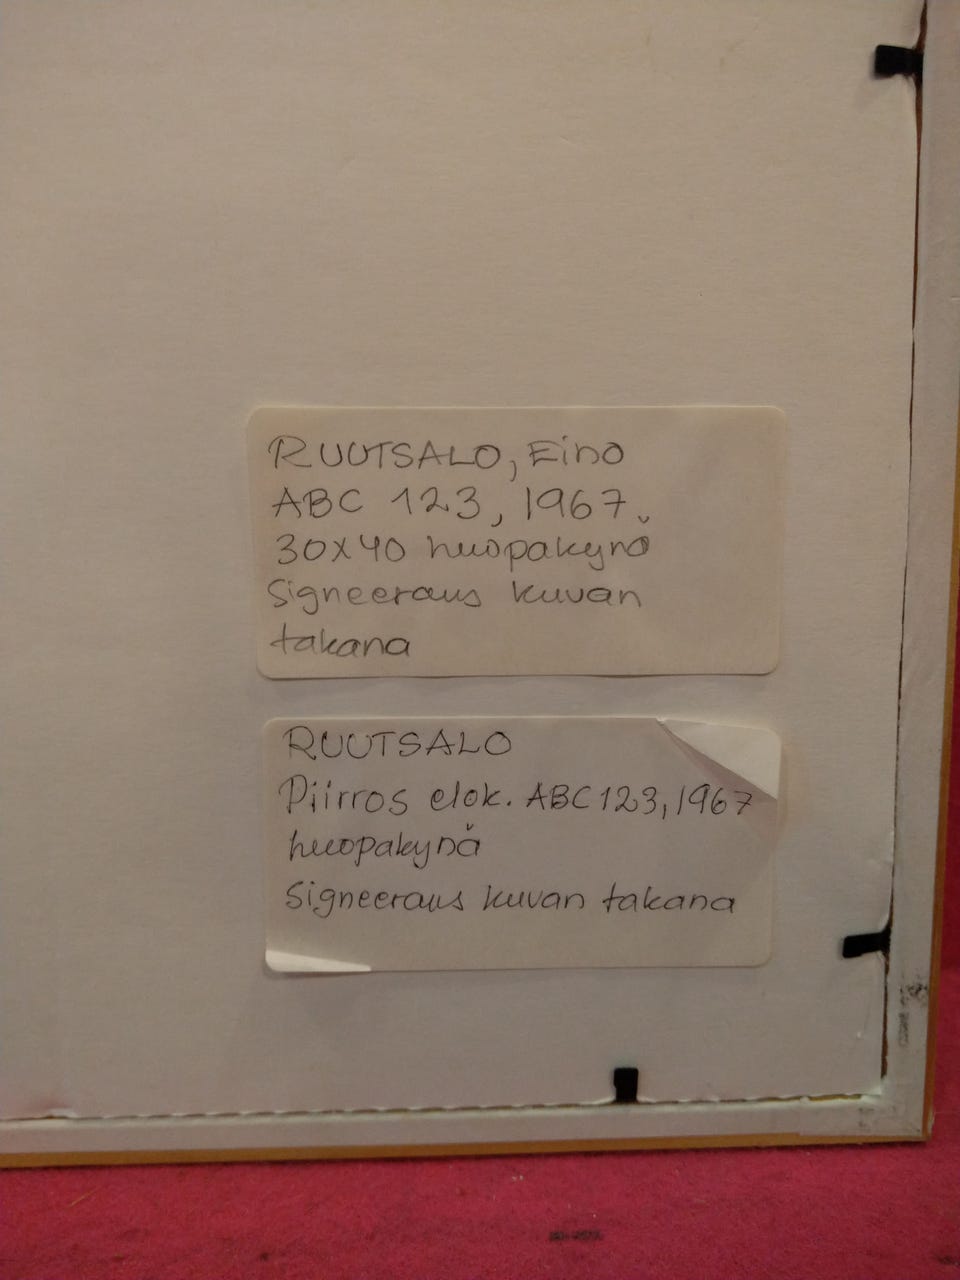 RUUTSALO, Eino
ABC 123, 1967.
30x40 huopakynä
Signeeraus kuvan
takana
RUUTSALO
Piirros elok. ABC 123, 1967
huopakynä
Signeeraus kuvan takana